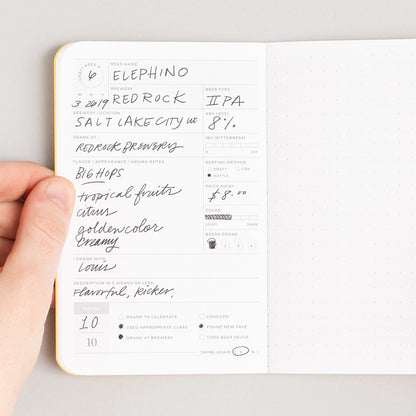 CRAFT BEER #
6
BEER NAME
ELEPHINO
M D Y
3 26 19
BREWERY
REDROCK
BEER TYPE
IIPA
BREWERY LOCATION
SALT LAKE CITY
ABV LEVEL
8%
DRANK AT
REDROCK BREWERY
IBU (BITTERNESS)
0 100
FLAVOR / APPEARANCE / AROMA NOTES
BIG HOPS
tropical fruits
citrus
golden color
creamy
SERVING METHOD
DRAFT CAN
BOTTLE
PRICE POINT
$8.00
COLOR
LIGHT DARK
BEERS DRANK
2 3 4
I DRANK WITH
Louis
DESCRIPTION IN 3 WORDS OR LESS
Flavorful, Kicker,
10
10
DRANK TO CELEBRATE
USED APPROPRIATE GLASS
DRANK AT BREWERY
CHUGGED
FOUND NEW FAVE
TOOK BEER SELFIE
DRINK AGAIN Y N